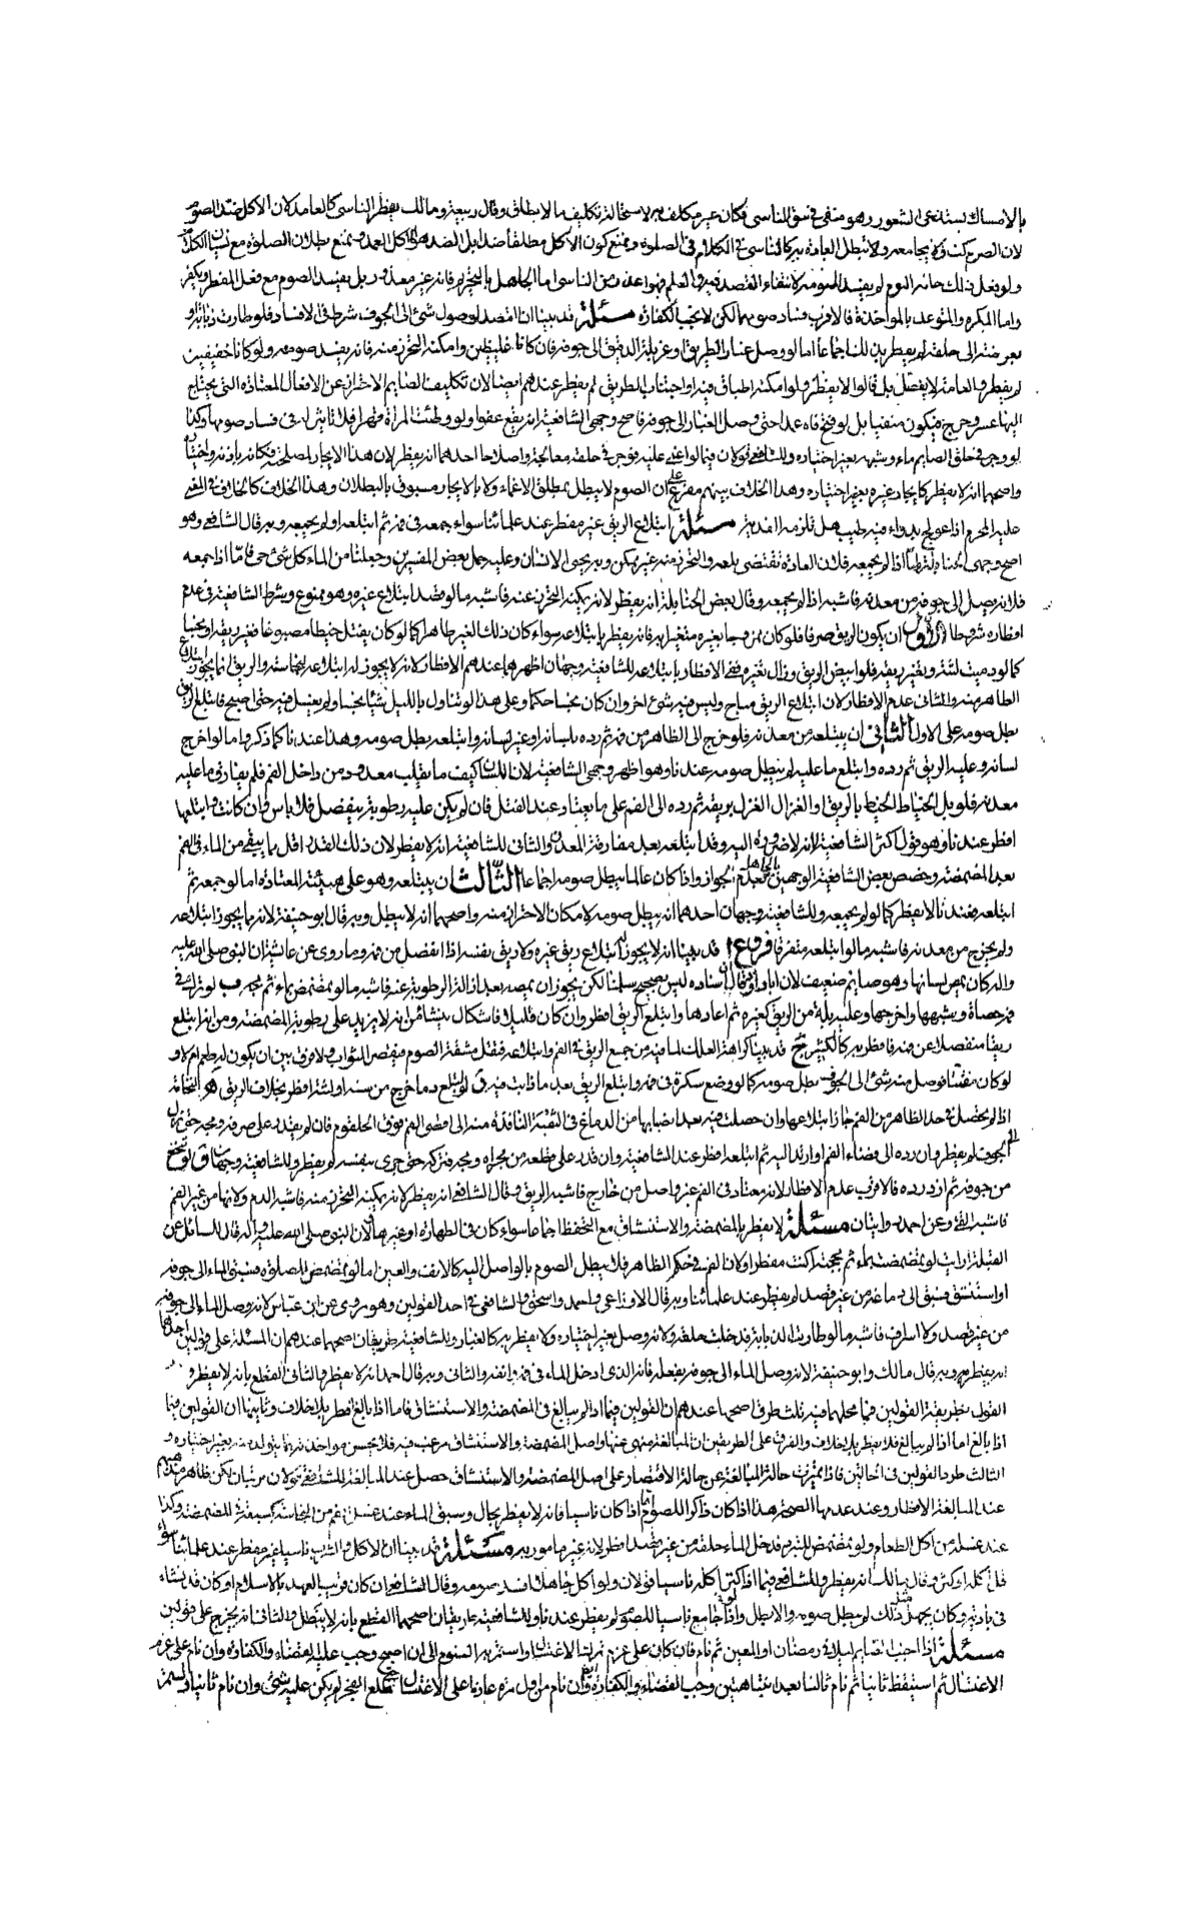 بالامساك يستدعى الشعور وهو منفى فى حق الناسى فكان غير مكلف به لاستحالة تكليف ما لا يطاق وقال ربيعة ومالك يفطر الناسى كالعامد لان الاكل ضد الصوم
ولو فعل ذلك حالة النوم لم يفسد الصوم لانتفاء القصد فيه والعلم فهو اعذر من الناسى اما الجاهل بالتحريم فانه غير معذور بل يفسد الصوم مع فعل المفطر ويكفر
واما المكره والمتوعد بالمواخذة فالاقرب فساد صومهما لكن لا تجب الكفارة مسئلة قد بينا ان القصد لوصول شئ الى الجوف شرط فى الافساد فلو طارت ذبابة او
بعوضة الى حلقه لم يفطر بذلك اجماعا اما لو وصل غبار الطريق او غربلة الدقيق الى جوفه فان كانا غليظين وامكنه التحرز منه فانه يفسد صومه ولو كانا خفيفين
لم يفطر والعامة لم يفصل بل قالوا لا يفطر ولو امكنه اطباق فيه او اجتناب الطريق لم يفطر عندهم ايضا لان تكليف الصايم الاحتراز عن الافعال المعتادة التى يحتاج
اليها عسر وحرج فيكون منفيا بل لو فتح فاه عمدا حتى وصل الغبار الى جوفه فاصح وجهى الشافعية انه يقع عفوا ولو وطئت المراة قهرا فلا تاثير له فى فساد صومها وكذا
لو وجر فى حلق الصايم ماء وشبهه بغير اختياره وللشافعى قولان فيما لو اغمى عليه فوجر فى حلقه معالجة واصلاحا احدهما انه يفطر لان هذا الايجار لمصلحته فكانه باذنه واختياره
واصحهما انه لا يفطر كايجار غيره بغير اختياره وهذا الخلاف بينهم مفرع على ان الصوم لا يبطل بمطلق الاغماء والا فالايجار مسبوق بالبطلان وهذا الخلاف كالخلاف فى المغمى
عليه المحرم اذا عولج بدواء فيه طيب هل تلزمه الفدية مسئلة ابتلاع الريق غير مفطر عند علمائنا سواء جمعه فى فمه ثم ابتلعه او لم يجمعه وبه قال الشافعى وهو
اصح وجهى الحنابلة اما اذا لم يجمعه فلان العادة تقتضى بلعه والتحرز منه غير ممكن وبه يحيى الانسان وعليه حمل بعض المفسرين وجعلنا من الماء كل شئ حى فامّا اذا جمعه
فلانه وصل الى جوفه من معدنه فاشبه اذا لم يجمعه وقال بعض الحنابلة انه يفطر لانه يمكنه التحرز عنه فاشبه ما لو قصد ابتلاع غيره وهو ممنوع وشرط الشافعية فى عدم
افطاره شروطا الاول ان يكون الريق صرفا فلو كان ممزوجا بغيره متغيرا به فانه يفطر بابتلاعه سواء كان ذلك الغير طاهرا كما لو كان يفتل خيطا مصبوغا فغير ريقه او نجسا
كما لو دميت لثته وتغير ريقه فلو ابيض الريق وزال تغيره ففى الافطار بابتلاعه للشافعية وجهان اظهرهما عندهم الافطار لانه لا يجوز له ابتلاعه لنجاسته والريق انما يجوز ابتلاع
الطاهر منه والثانى عدم الافطار لان ابتلاع الريق مباح وليس فيه شئ اخر وان كان نجسا حكما وعلى هذا لو تناول بالليل شيئا نجسا ولم يغسل فمه حتى اصبح فابتلع الريق
بطل صومه على الاول الثانى ان يبتلعه من معدنه فلو خرج الى الظاهر من فمه ثم رده بلسانه او غير لسانه وابتلعه بطل صومه وهذا عندنا كما ذكروا ما لو اخرج
لسانه وعليه الريق ثم رده وابتلع ما عليه لم يبطل صومه عندنا وهو اظهر وجهى الشافعية لان اللسان كيف ما يقلب معدود من داخل الفم فلم يفارق ما عليه
معدنه فلو بل الخياط الخيط بالريق او الغزال الغزل بريقه ثم رده الى الفم على ما يعتاد عند الفتل فان لم يكن عليه رطوبة ينفصل فلا باس وان كانت وابتلعها
افطر عندنا وهو قول اكثر الشافعية لانه لا ضرورة اليه وقد ابتلعه بعد مفارقة المعدن والثانى للشافعية انه لا يفطر لان ذلك القدر اقل مما يبقى من الماء فى الفم
بعد المضمضة وخصص بعض الشافعية الوجهين بالجاهل بعدم الجواز واذا كان عالما يبطل صومه اجماعا الثالث ان يبتلعه وهو على هيئته المعتادة اما لو جمعه ثم
ابتلعه فعندنا لا يفطر كما لو لم يجمعه وللشافعية وجهان احدهما انه يبطل صومه لامكان الاحتراز منه واصحهما انه لا يبطل وبه قال ابو حنيفة لانه مما يجوز ابتلاعه
ولم يخرج من معدنه فاشبه ما لو ابتلعه متفرقا فروع ا قد بينا انه لا يجوز له ابتلاع ريق غيره ولا ريق نفسه اذا انفصل من فمه وما روى عن عائشة ان النبى صلى الله عليه
واله كان يمص لسانها وهو صايم ضعيف لان ابا داود قال ان اسناده ليس بصحيح سلمنا لكن يجوز ان يمصه بعد ازالة الرطوبة عنه فاشبه ما لو تمضمض بماء ثم مجه ب لو ترك فى
فمه حصاة وشبهها واخرجها وعليه بلة من الريق كثيرة ثم اعادها وابتلع الريق افطر وان كان قليلا فاشكال ينشا من انه لا يزيد على رطوبة المضمضة ومن انه ابتلع
ريقا منفصلا عن فمه فافطر به كالكثير ج قد بينا كراهة العلك لما فيه من جمع الريق فى الفم وابتلاعه فتقل مشقة الصوم فيقصر الثواب ولا فرق بين ان يكون له طعم ام لا و
لو كان مفتتا فوصل منه شئ الى الجوف بطل صومه كما لو وضع سكرة فى فمه وابتلع الريق بعد ما ذابت فيه د لو ابتلع دما خرج من سنه او لثته افطر بخلاف الريق هـ النخامة
اذا لم يحصل فى حد الظاهر من الفم جاز ابتلاعها وان حصلت فيه بعد انصبابها من الدماغ فى الثقبة النافذة منه الى اقصى الفم فوق الحلقوم فان لم يقدر على صرفه ومجه حتى نزل
الى الجوف لم يفطر وان رده الى فضاء الفم او ارتد اليه ثم ابتلعه افطر عند الشافعية وان قدر على قطعه من مجراه ومجه فتركه حتى جرى بنفسه لم يفطر وللشافعية وجهان و لو تنخع
من جوفه ثم ازدرده فالاقرب عدم الافطار لانه معتاد فى الفم غير واصل من خارج فاشبه الريق وقال الشافعى انه يفطر لانه يمكنه التحرز منه فاشبه الدم ولانها من غير الفم
فاشبه القئ وعن احمد روايتان مسئلة لا يفطر بالمضمضة والاستنشاق مع التحفظ اجماعا سواء كان فى الطهارة او غيرها لان النبى صلى الله عليه واله قال للسائل عن
القبلة ارايت لو تمضمضت بماء ثم مججته اكنت مفطرا ولان الفم فى حكم الظاهر فلا يبطل الصوم بالواصل اليه كالانف والعين اما لو تمضمض للصلوة فسبق الماء الى جوفه
او استنشق فسبق الى دماغه من غير قصد لم يفطر عند علمائنا وبه قال الاوزاعى واحمد واسحق والشافعى فى احد القولين وهو مروى عن ابن عباس لانه وصل الماء الى جوفه
من غير قصد ولا اسراف فاشبه ما لو طارت الذبابة فدخلت حلقه ولانه وصل بغير اختياره ولا يفطر به كالغبار وللشافعية طريقان اصحهما عندهم ان المسئلة على قولين احدهما
انه يفطر وبه قال مالك وابو حنيفة لانه وصل الماء الى جوفه بفعله فانه الذى ادخل الماء فى فمه وانفه والثانى وبه قال احمد انه لا يفطر والثانى القطع بانه لا يفطر و
القول بطريقة القولين فيما محلهما فيه ثلث طرق اصحها عندهم ان القولين فيما اذا لم يبالغ فى المضمضة والاستنشاق فاما اذا بالغ افطر بلا خلاف وثانيها ان القولين فيما
اذا بالغ اما اذا لم يبالغ فلا يفطر بلا خلاف والفرق على الطريقين ان المبالغة منهى عنها واصل المضمضة والاستنشاق مرغب فيه فلا يحسن مواخذته بما يتولد منه بغير اختياره و
الثالث طرد القولين فى الحالتين فاذا تميزت حالة المبالغة عن حالة الاقتصار على اصل المضمضة والاستنشاق حصل عند المبالغة للشافعى قولان مرتبان لكن ظاهر مذهبهم
عند المبالغة الافطار وعند عدمها الصحة هذا اذا كان ذاكرا للصوم اما اذا كان ناسيا فانه لا يفطر بحال وسبق الماء عند غسل الفم من النجاسة كسبقه فى المضمضة وكذا
عند غسله من اكل الطعام ولو تمضمض للتبرد فدخل الماء حلقه من غير قصد افطر لانه غير مامور به مسئلة قد بينا ان الاكل والشرب ناسيا غير مفطر عند علمائنا سواء
فى بادية وكان يجهل مثل ذلك لم يبطل صومه والا بطل واذا جامع ناسيا للصوم لم يفطر عندنا وللشافعية طريقان اصحهما القطع بانه لا يبطل والثانى انه يخرج على قولين
مسئلة اذا اجنب الصايم ليلا فى رمضان او المعين ثم نام فان كان على عزم ترك الاغتسال واستمر به النوم الى ان اصبح وجب عليه القضاء والكفارة وان نام على عزم
الاغتسال ثم استيقظ ثانيا ثم نام ثالثا بعد انتباهتين وجب القضاء والكفارة ايضا وان نام من اول مرة عازما على الاغتسال حتى طلع الفجر لم يكن عليه شئ وان نام ثانيا واستمر